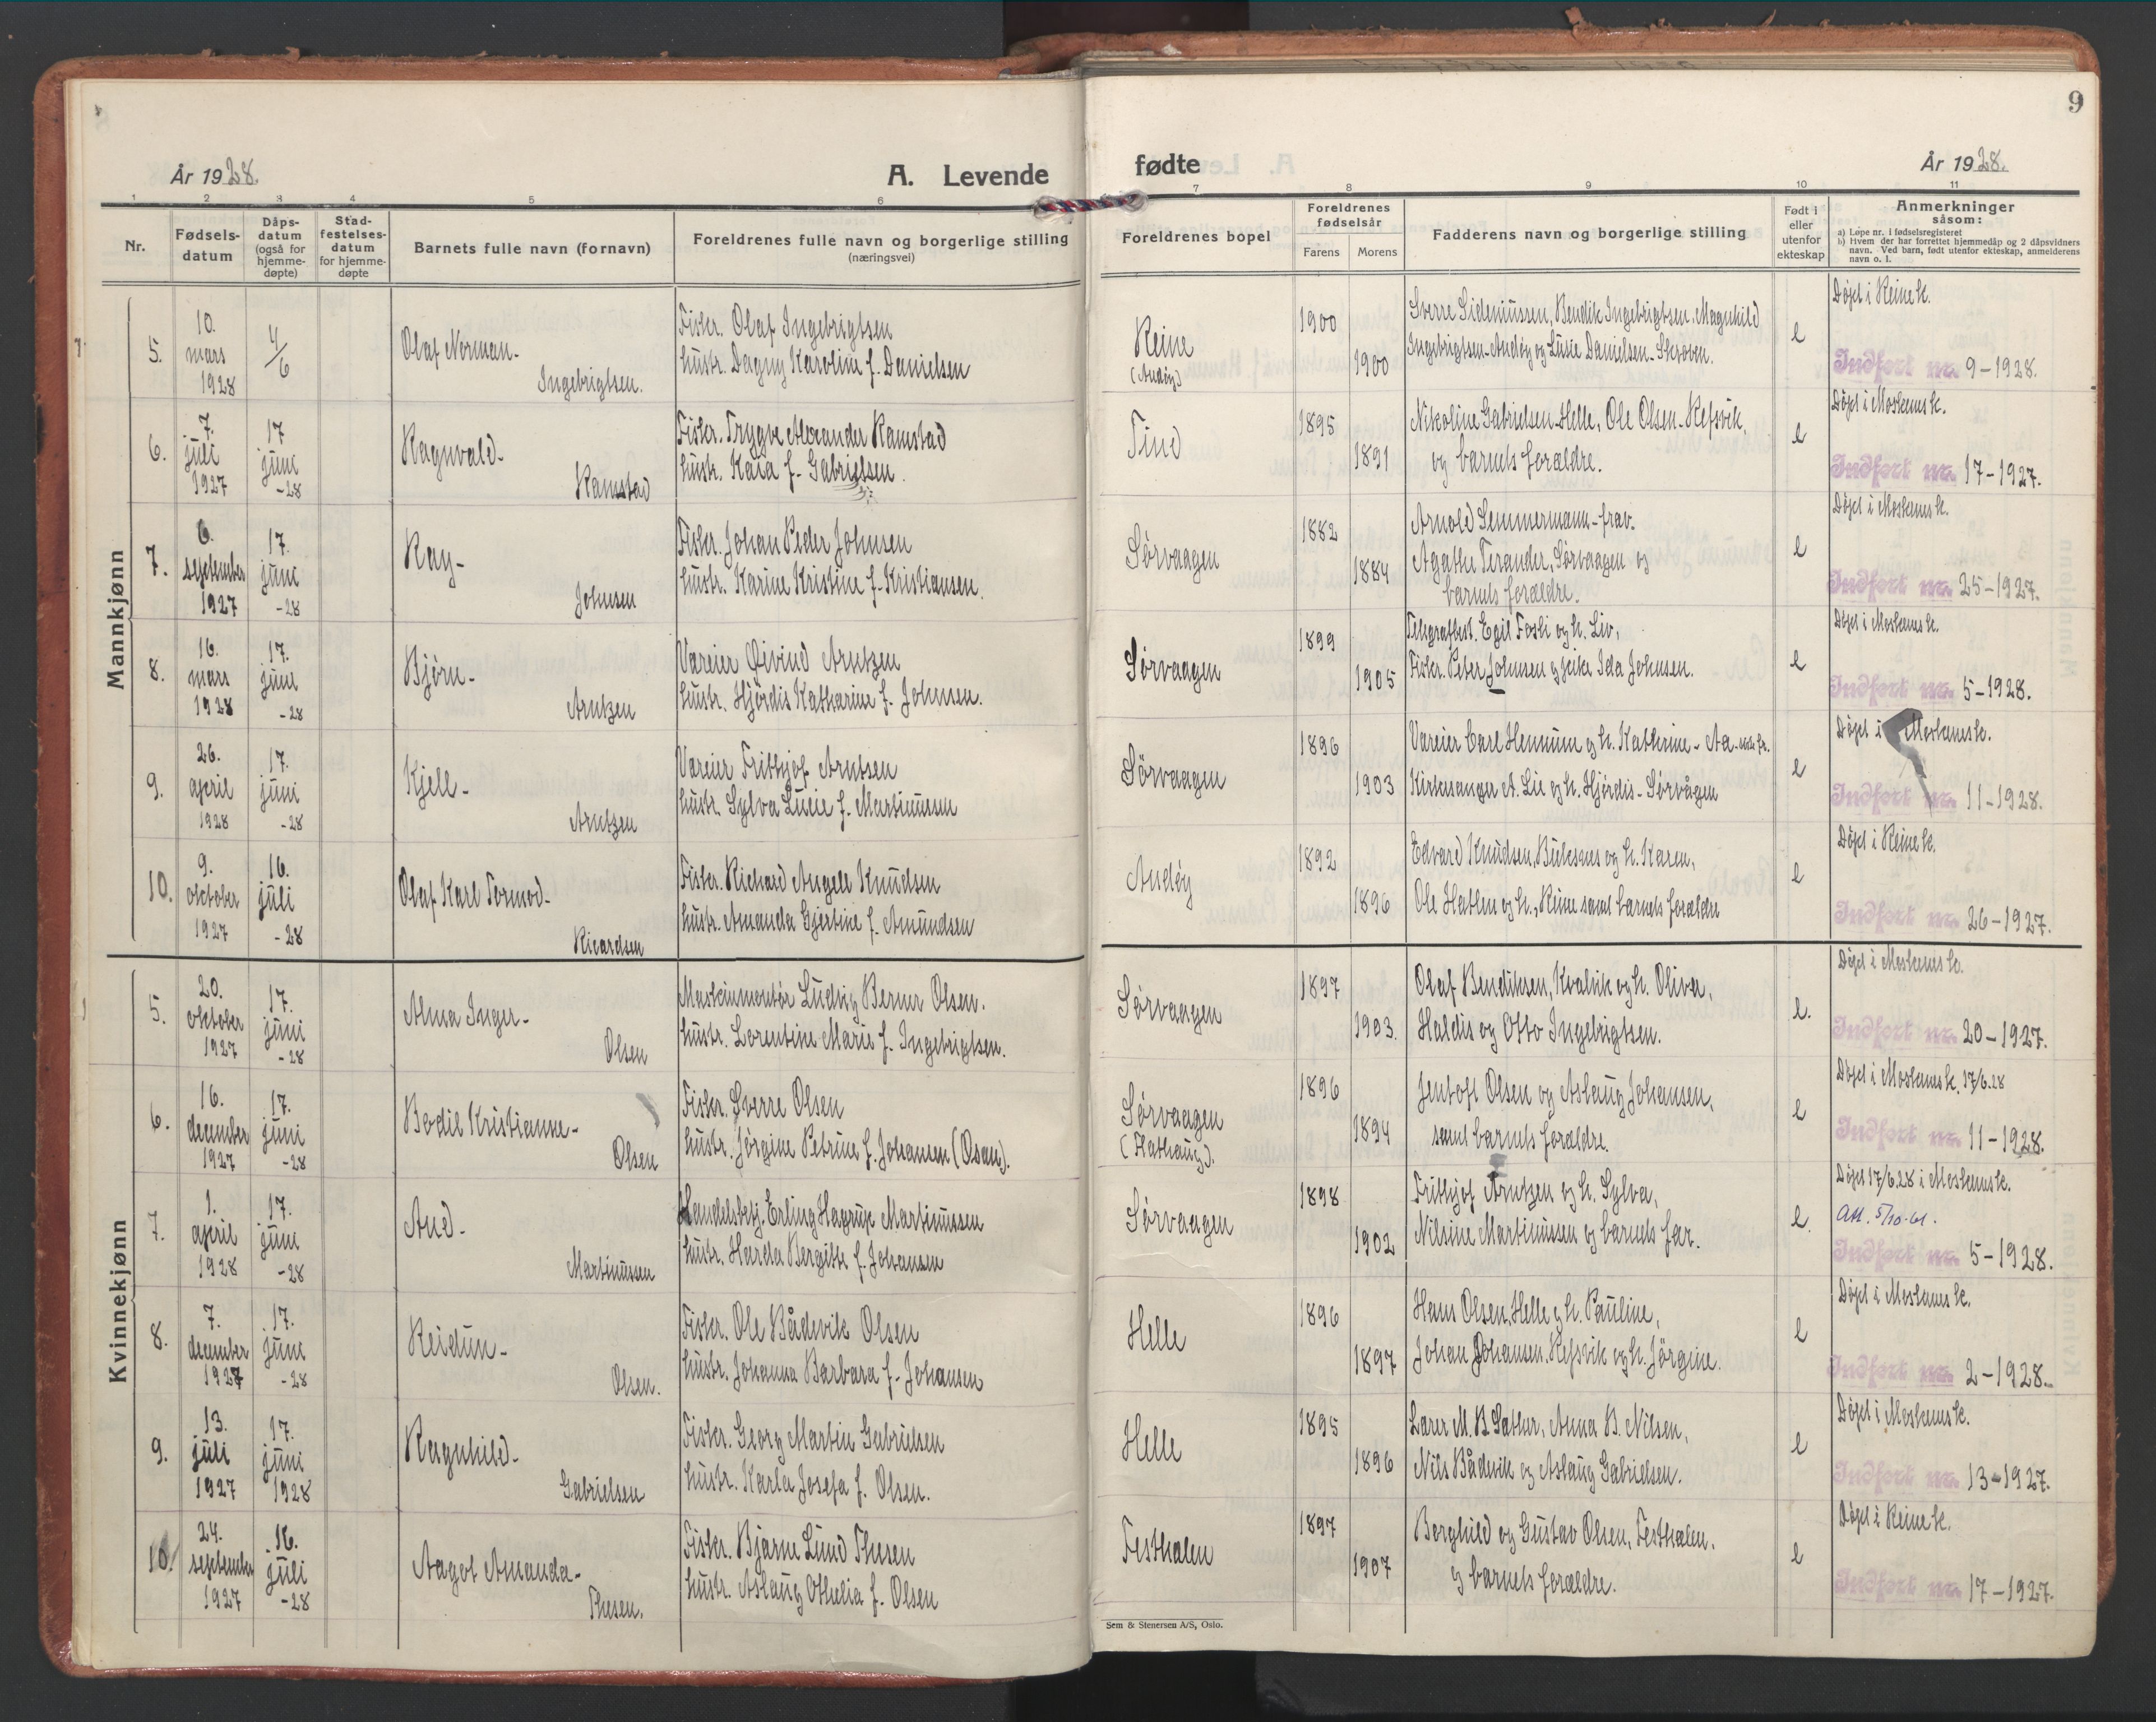 År 1928.
A. Levende
fødte
År 1928.
9
1 2 3 4 5 6 7 8 9 10 11
Nr.
Fødsels-
datum
Dåps-
datum
(også for
hjemme-
døpte)
Stad-
festelses-
datum
for hjemme-
døpte
Barnets fulle navn (fornavn)
Foreldrenes fulle navn og borgerlige stilling
(næringsvei)
Foreldrenes bopel
Foreldrenes
fødselsår
Farens
Morens
Fadderens navn og borgerlige stilling
Født i
eller
utenfor
ekteskap
Anmerkninger
såsom:
a) Løpe nr. i fødselsregisteret
b) Hvem der har forrettet hjemmedåp og 2 dåpsvidners
navn. Ved barn, født utenfor ekteskap, anmelderens
navn o. l.
Mannkjønn
5.
10.
mars
1928
4/6
Olaf Norman-
Ingebrigtsen.
Fisker. Olaf Ingebrigtsen
hustr. Dagny Karoline f. Danielsen
Reine
(Andøy)
1900
1900
Sverre Sideniussen, Bendik Ingebrigtsen, Magnhild
Ingebrigtsen-Andøy og Lusie Danielsen-Skroven.
e
Døpt i Reine k.
Indført nr. 9-1928.
6.
7.
juli
1927
17
juni
-28
Ragnvald-
Ramstad
Fisker. Trygve Alexander Ramstad
hustr. Kaia f. Gabrielsen.
Tind
1895
1891
Nikoline Gabrielsen-Helle, Ole Olsen-Refsvik,
og barnets forældre.
e
Døpt i Moskenes k.
Indført nr. 17-1927.
7.
6.
september
1927
17.
juni
-28
Kay-
Johnsen
Fisker. Johan Peder Johnsen
hustr. Karine Kristine f. Kristiansen.
Sørvaagen
1882
1884
Arnold Semmermann-frav.
Agathe Terander, Sørvaagen og
barnets forældre.
e
Døpt i Moskenes k.
Indført nr. 25-1927.
8.
16.
mars
1928
17.
juni
-28
Bjørn-
Arntzen
Vareier Øivind Arntzen
hustr. Hjördis Katharine f. Johnsen.
Sørvaagen
1899
1905
Telegrafbest. Egil Fosli og h. Liv,
Fisker. Peter Johnsen og pike Ida Johnsen.
e
Døpt i Moskenes k.
Indført nr. 5-1928.
9.
26.
april
1928
17.
juni
-28
Kjell-
Arntzen
Vareier Frithjof Arntsen
hustr. Sylva Lucie f. Martinussen
Sørvaagen
1896
1903
Vareier Carl Hennum og h. Kathrine-Aa
Kirkesanger A. Lie og h. Hjørdis-Sørvågen
e
Døpt i Moskenes k.
Indført nr. 11-1928.
10.
9.
oktober
1927
16.
juli
-28
Olaf Karl Tormod-
Ricardsen
Fisker. Richard Angell Knudsen
hustr. Amanda Gjertine f. Amundsen
Andøy
1892
1896
Edvard Knudsen, Buksnes og h. Karen,
Ole Hatlen og h., Reine samt barnets forældre
e
Døpt i Reine k.
Indført nr. 26-1927.
Kvinnekjønn
5.
20.
oktober
1927
17.
juni
-28
Alma Inger-
Olsen
Maskinmontör Ludvig Berner Olsen.
hustr. Lorentine Marie f. Ingebrigtsen.
Sørvaagen
1897
1903.
Olaf Bendiksen, Kvalvik og h. Oliva,
Haldis og Otto Ingebrigtsen.
e.
Døpt i Moskenes k.
Indført nr. 20-1927.
6.
16.
december
1927
17.
juni
-28
Bodil Kristianne-
Olsen
Fisker. Sverre Olsen
hustr. Jørgine Petrine f. Johansen (Osan).
Sørvaagen
(Flathaug).
1896
1894
Jentoft Olsen og Aslaug Johansen,
samt barnets forældre.
e
Døpt i Moskenes k. 17/6.28
Indført nr. 11-1928.
7.
1.
april
1928
17.
juni
-28
Aud-
Martinussen
Handelsbetj. Erling Hagrup Martinussen
hustr. Harda Bergitte f. Johansen
Sørvaagen
1898
1902
Frithjof Arntzen og h. Sylva,
Nilsine Martinussen og barnets far.
e.
Døpt 17/6.28 i Moskenes k.
Att. 5/10-61.
Indført nr. 5-1928.
8.
7.
december
1927
17.
juni
-28
Reidun-
Olsen.
Fisker. Ole Bådsvik Olsen
hustr. Johanna Barbara f. Johansen
Helle
1896
1897
Hans Olsen, Helle og h. Pauline,
Johan Johansen, Refsvik og h. Jörgine.
e
Døpt i Moskenes k.
Indført nr. 2-1928.
9.
13.
juli
1927
17.
juni
1928
Ragnhild-
Gabrielsen
Fisker. Georg Martin Gabrielsen
hustr. Karla Josefa f. Olsen.
Helle
1895
1896
Lærer M. B. Sæther, Anna B. Nilsen,
Nils Bådsvik og Aslaug Gabrielsen.
e
Døpt i Moskenes k.
Indført nr. 13-1927.
10.
24.
september
1927
16.
juli
-28
Aagot Amanda-
Thesen.
Fisker. Bjarne Lund Thesen
hustr. Aslaug Othelia f. Olsen
Festhælen
1897
1907
Borghild og Gustav Olsen, Festhælen.
og barnets forældre.
e
Døpt i Reine k.
Indført nr. 17-1927.
Sem & Stenersen A/S, Oslo.